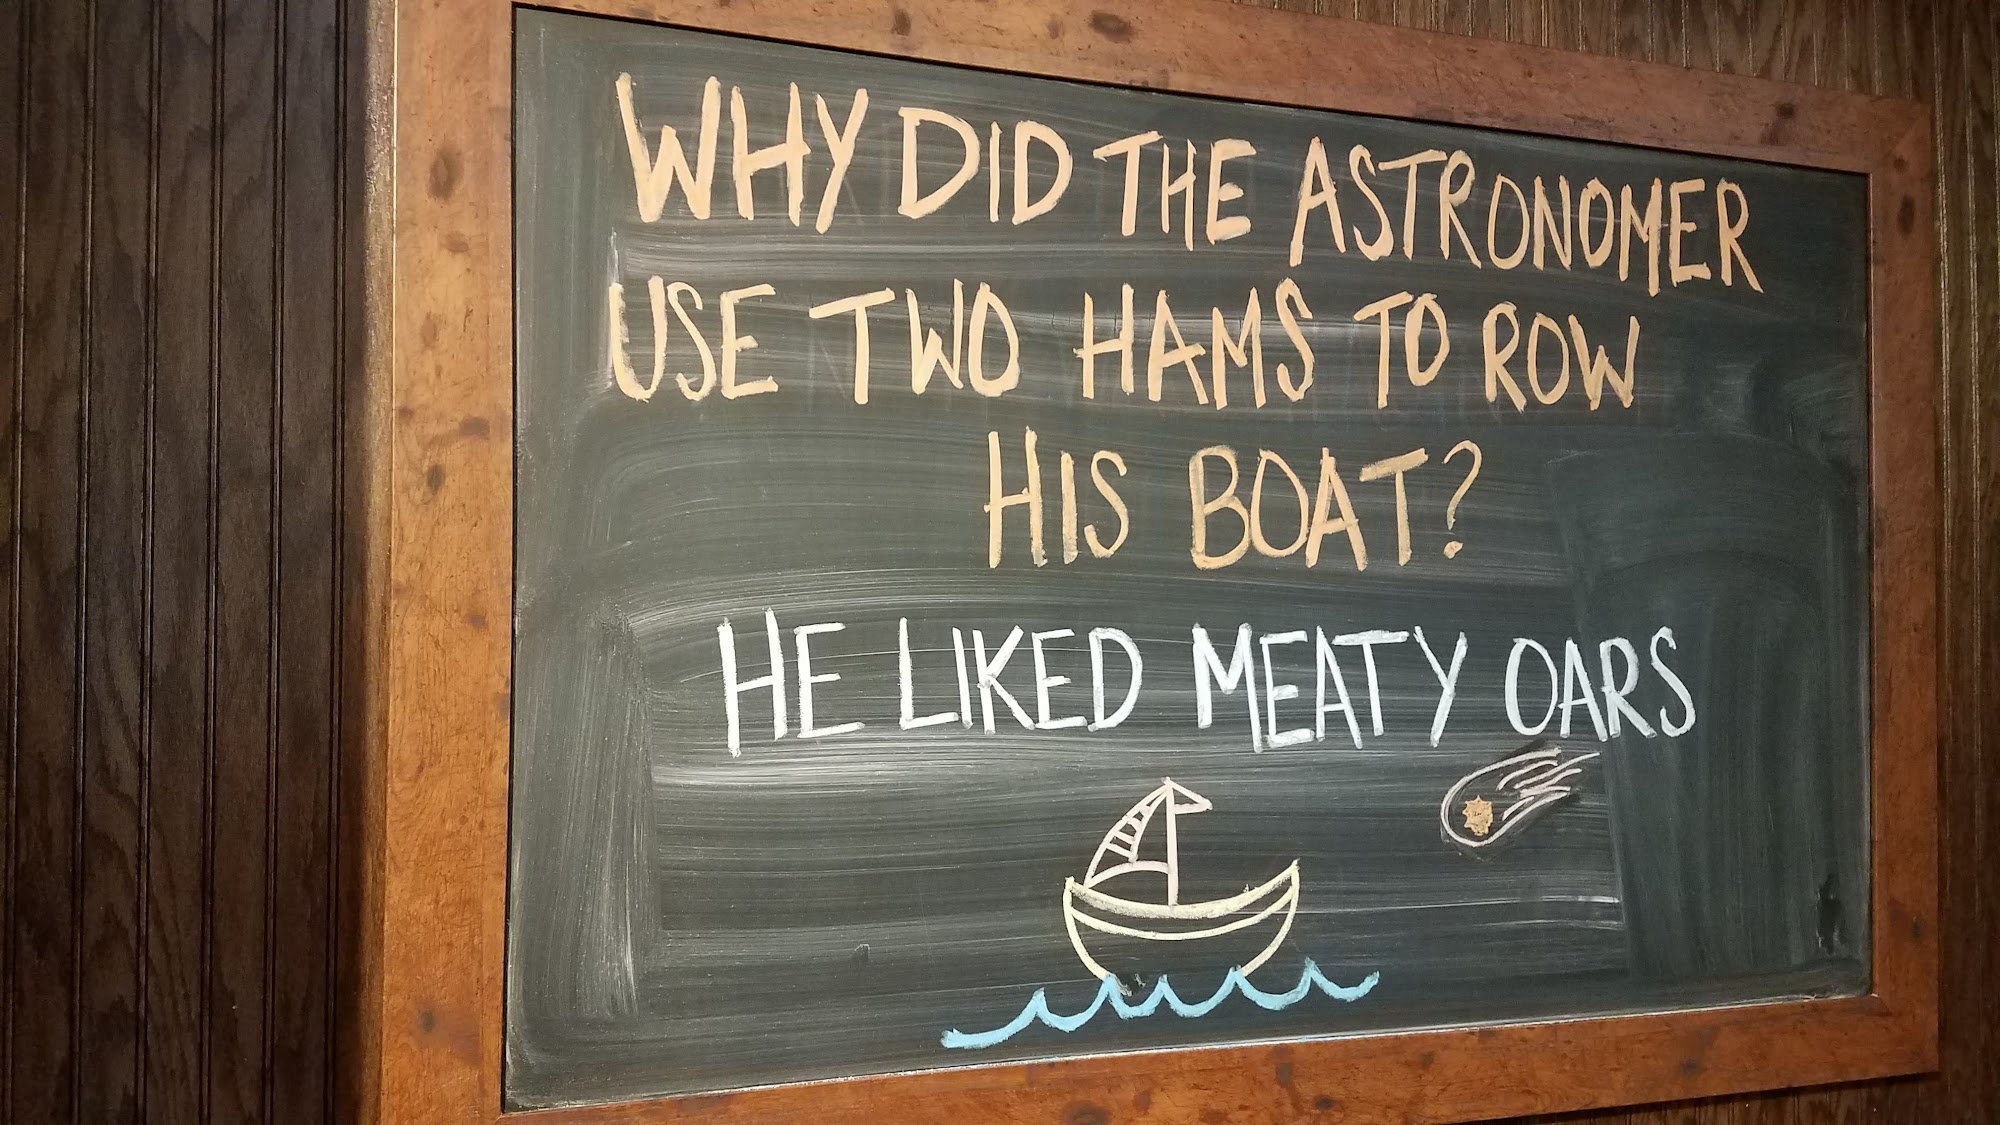 WHY DID THE ASTRONOMER
USE TWO HAMS TO ROW
HIS BOAT?
HE LIKED MEATY OARS